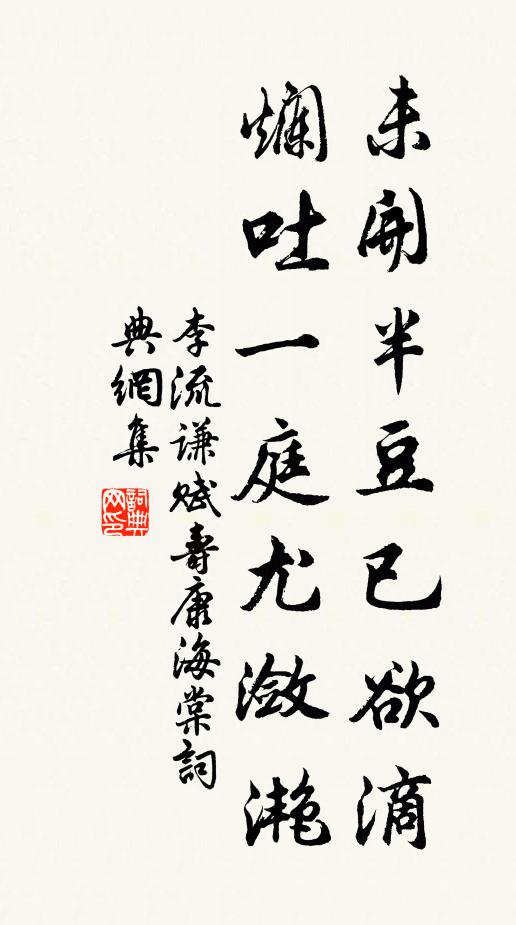 未開半豆已欲滴
爛吐一庭尤瀲灧
李流謙賦壽康海棠詞
典網集
詞典网印